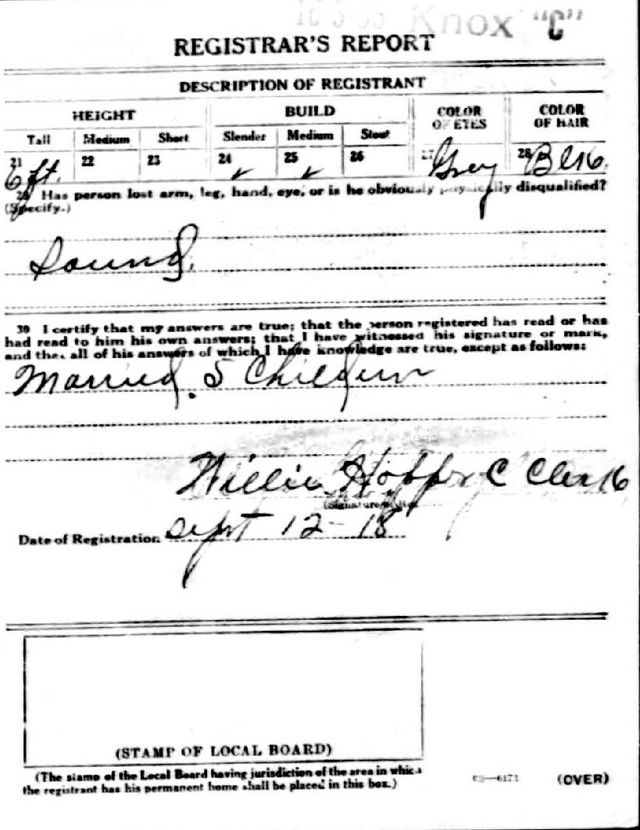 Knox "C"
REGISTRAR'S REPORT
DESCRIPTION OF REGISTRANT
HEIGHT BUILD COLOR OF EYES COLOR OF HAIR
Tall Medium Short Slender Medium Stout
21 22 23 24 25 26 27 28
6 ft. ✓ ✓ Grey Blk.
29 Has person lost arm, leg, hand, eye, or is he obviously physically disqualified?
(Specify.)
Sound.
30 I certify that my answers are true; that the person registered has read or has
had read to him his own answers; that I have witnessed his signature or mark,
and that all of his answers of which I have knowledge are true, except as follows:
Married. 5 Children
Willie Clerk
Date of Registration Sept 12 - 18
(STAMP OF LOCAL BOARD)
(The stamp of the Local Board having jurisdiction of the area in which
the registrant has his permanent home shall be placed in this box.)
(OVER)